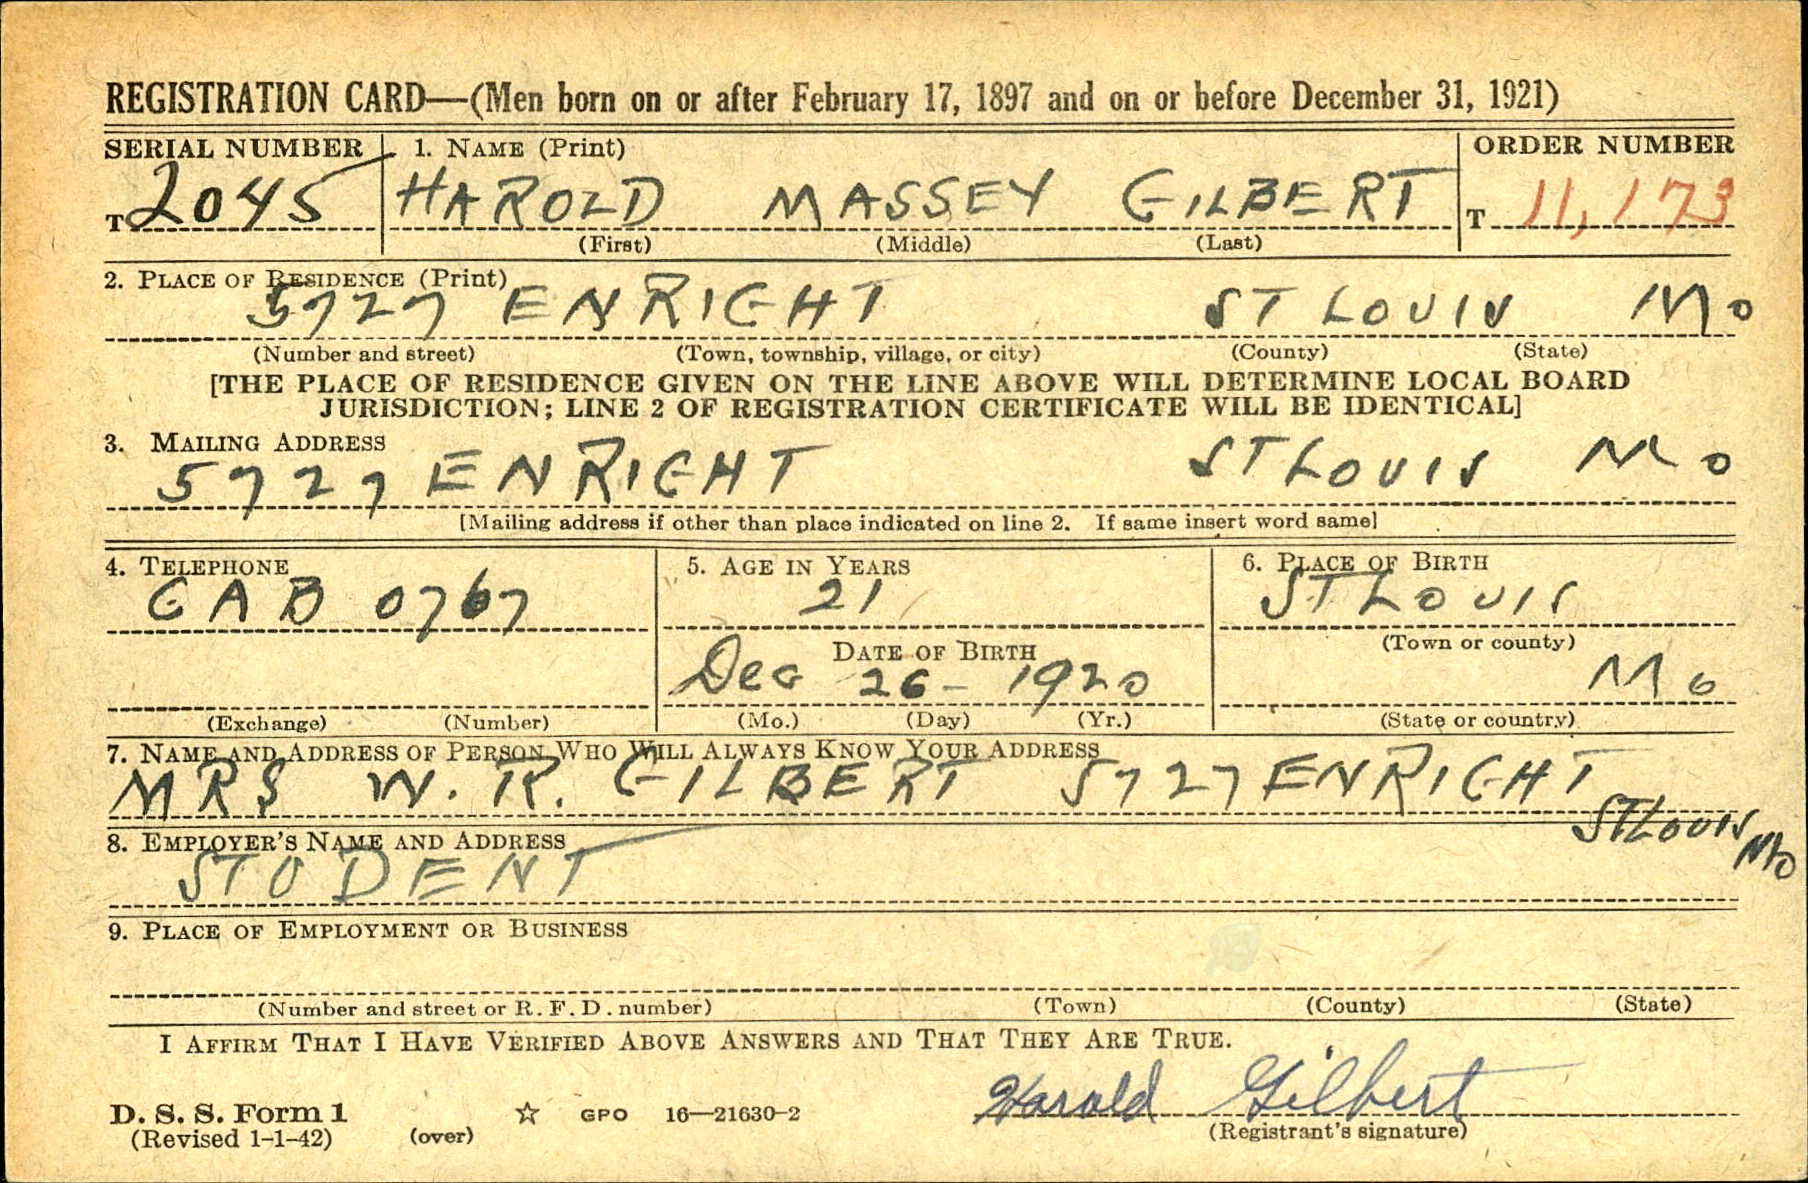 REGISTRATION CARD—(Men born on or after February 17, 1897 and on or before December 31, 1921)
SERIAL NUMBER 1. NAME (Print) ORDER NUMBER
T 2045 HAROLD MASSEY GILBERT T 11,173
(First) (Middle) (Last)
2. PLACE OF RESIDENCE (Print)
5727 ENRIGHT ST LOUIS MO
(Number and street) (Town, township, village, or city) (County) (State)
[THE PLACE OF RESIDENCE GIVEN ON THE LINE ABOVE WILL DETERMINE LOCAL BOARD
JURISDICTION; LINE 2 OF REGISTRATION CERTIFICATE WILL BE IDENTICAL]
3. MAILING ADDRESS
5727 ENRIGHT ST LOUIS MO
[Mailing address if other than place indicated on line 2. If same insert word same]
4. TELEPHONE 5. AGE IN YEARS 6. PLACE OF BIRTH
CAB 0767 21 ST LOUIS
DATE OF BIRTH (Town or county)
Dec 26 - 1920 MO
(Exchange) (Number) (Mo.) (Day) (Yr.) (State or country)
7. NAME AND ADDRESS OF PERSON WHO WILL ALWAYS KNOW YOUR ADDRESS
MRS W. R. GILBERT 5727 ENRIGHT
ST LOUIS MO
8. EMPLOYER'S NAME AND ADDRESS
STUDENT
9. PLACE OF EMPLOYMENT OR BUSINESS
(Number and street or R. F. D. number) (Town) (County) (State)
I AFFIRM THAT I HAVE VERIFIED ABOVE ANSWERS AND THAT THEY ARE TRUE.
Harold Gilbert
D. S. S. Form 1 ☆ GPO 16—21630-2
(Revised 1-1-42) (over) (Registrant's signature)